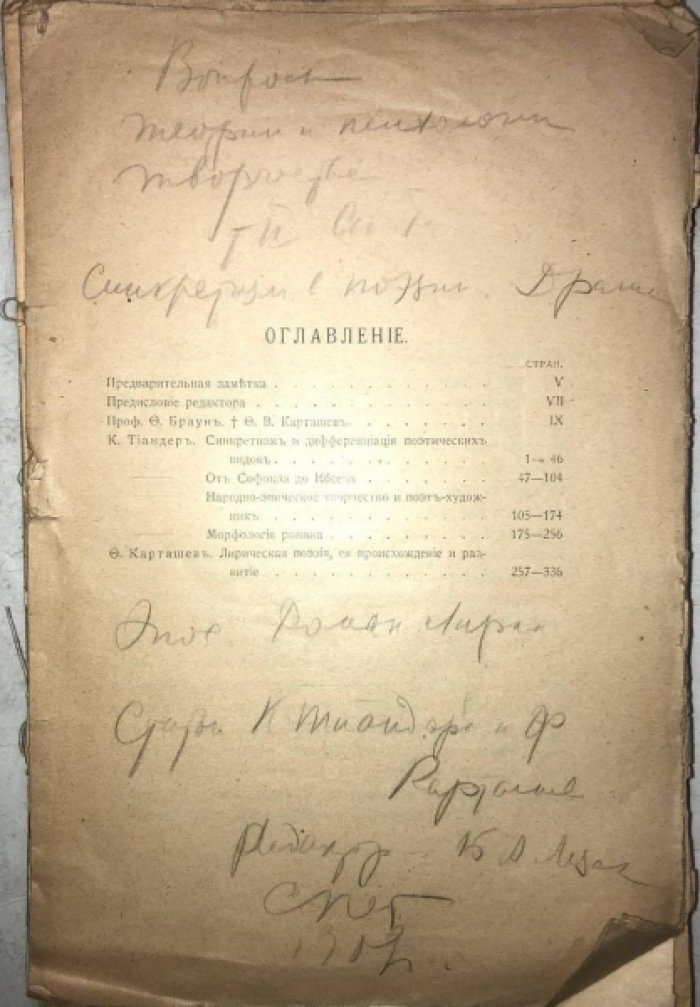 Вопросы
теории и психологии
творчества
Синкретизм в поэзии. Драма
ОГЛАВЛЕНІЕ.
СТРАН.
Предварительная замѣтка . . . . . . . . . . . V
Предисловіе редактора . . . . . . . . . . . . VII
Проф. Ѳ. Браунъ. † Ѳ. В. Карташевъ . . . . . . . IX
К. Тіандеръ. Синкретизмъ и дифференціація поэтическихъ
видовъ . . . . . . . . . . 1—46
Отъ Софокла до Ибсена . . . . . . 47—104
Народно-эпическое творчество и поэтъ-худож-
никъ . . . . . . . . . . 105—174
Морфологія романа . . . . . . . 175—256
Ѳ. Карташевъ. Лирическая поэзія, ея происхожденіе и раз-
витіе . . . . . . . . . . 257—336
Эпос. Роман. Лирика
Статьи К Тиандера и Ф
Карташева
Редактор
СПб
1907 г.